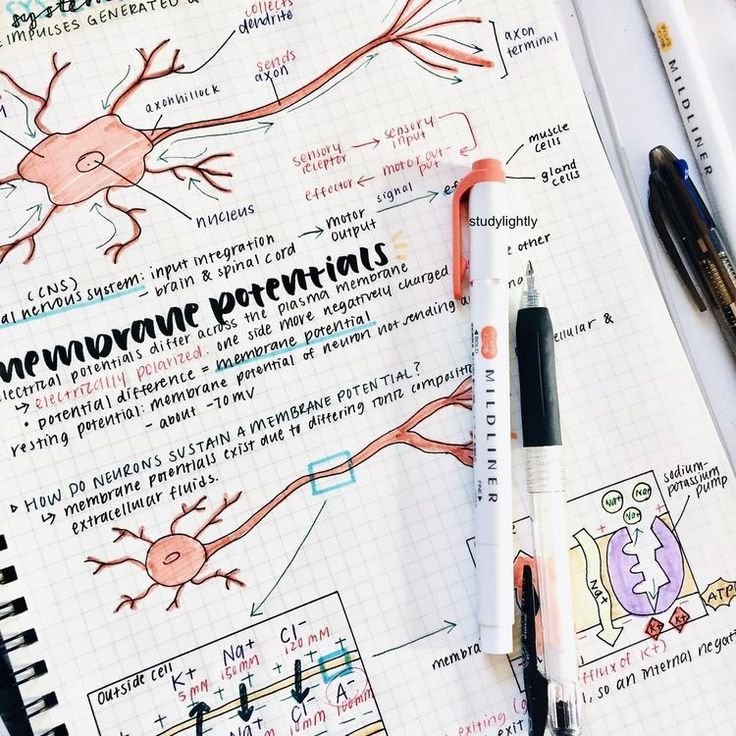 system
E IMPULSES GENERATED &
collects
dendrite
sends
axon
axonhillock
axon
terminal
nucleus
sensory
receptor
sensory
input
motor out-
put
effector
signal
motor
output
muscle
cells
gland
cells
studylightly
(CNS)
al nervous system: input integration
- brain & spinal cord
membrane potentials
electrical potentials differ across the plasma membrane
↳ electrically polarized. one side more negatively charged
other
• potential difference = membrane potential
resting potential: membrane potential of neuron not sending
- about -70mV
cellular &
▷ HOW DO NEURONS SUSTAIN A MEMBRANE POTENTIAL?
↳ membrane potentials exist due to differing ionic
extracellular fluids.
MILDLINER
MILDLINER
sodium-
potassium
pump
Na+
Na+
Na+
Na+
ATP
K+
K+
Outside cell
K+
5 mM
Na+
150 mM
Cl-
120 mM
Na+
Cl-
10mM
A-
100mM
fflux of K+)
, so an internal negati
exiting